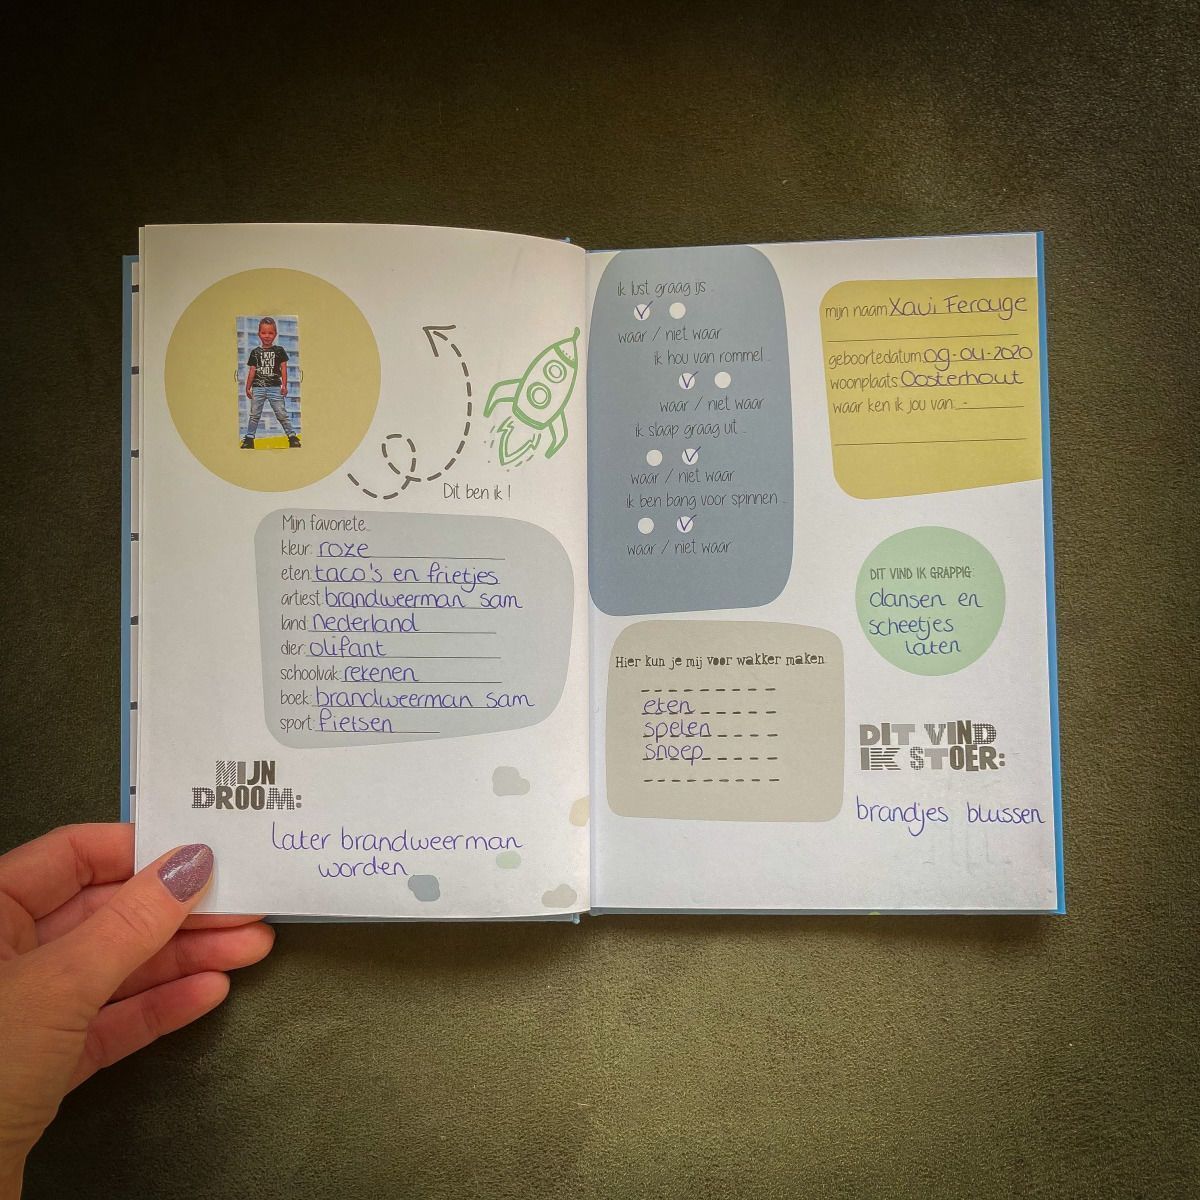 Dit ben ik !
Mijn favoriete...
kleur: roze
eten: taco's en frietjes
artiest: brandweerman sam
land: nederland
dier: olifant
schoolvak: rekenen
boek: brandweerman sam
sport: fietsen
MIJN
DROOM:
later brandweerman
worden
ik lust graag ijs...
waar / niet waar
ik hou van rommel...
waar / niet waar
ik slaap graag uit...
waar / niet waar
ik ben bang voor spinnen...
waar / niet waar
Hier kun je mij voor wakker maken:
eten
spelen
snoep
mijn naam: Xavi Ferouge
geboortedatum: 09-04-2020
woonplaats: Oosterhout
waar ken ik jou van: -
DIT VIND IK GRAPPIG:
dansen en
scheetjes
laten
DIT VIND
IK STOER:
brandjes blussen